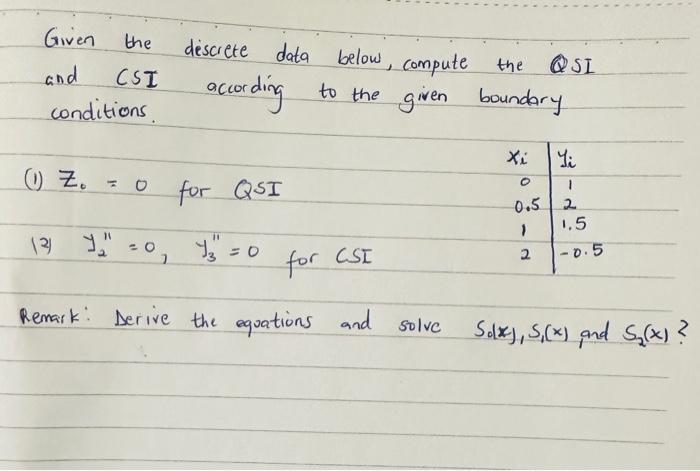 Given the discrete data below, compute the QSI
and CSI according to the given boundary
conditions.
xi yi
0 1
0.5 2
1 1.5
2 -0.5
(1) Z₀ = 0 for QSI
(2) y₂'' = 0, y₃'' = 0 for CSI
Remark: Derive the equations and solve S₀(x), S₁(x) and S₂(x)?